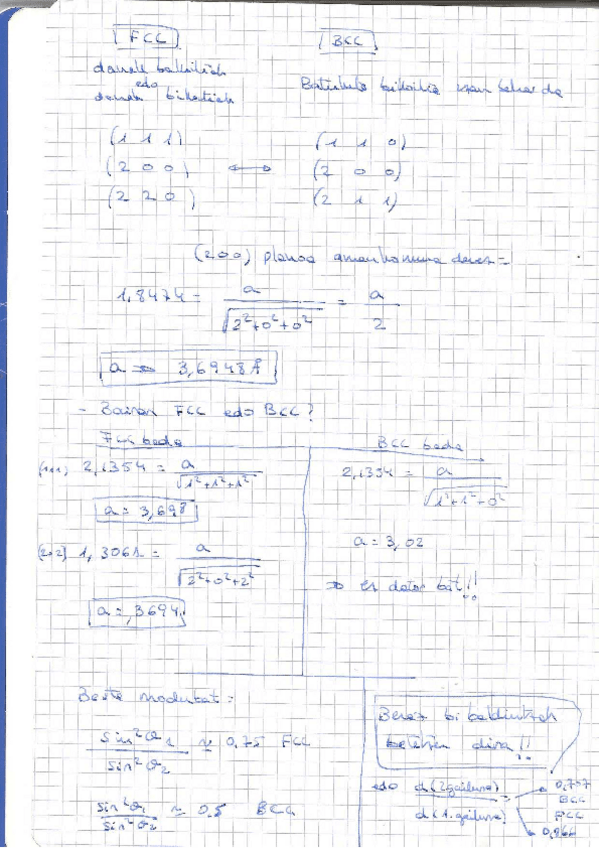 FCC
BCC
danak bakoitiak
edo
danak bikoitiak
Batuketa bikoitia izan behar da
(1 1 1)
(1 1 0)
(2 0 0) ↔ (2 0 0)
(2 2 0)
(2 1 1)
(200) planoa amankomuna denez =
1,8474 = a / √2²+0²+0² = a / 2
a = 3,6948 Å
- Zairen FCC edo BCC?
FCC bada
(111) 2,1354 = a / √1²+1²+1²
a = 3,698
(202) 1,3061 = a / √2²+0²+2²
a = 3,694
BCC bada
2,1354 = a / √1²+1²+0²
a = 3,02
⇒ ez dator bat!!
Beste modutat:
sin²θ1 / sin²θ2 ≈ 0.75 FCC
sin²θ1 / sin²θ2 ≈ 0.5 BCC
Beraz bi baldintzak
betetzen dira!!
edo d(2gailurra) / d(1.gailurra)
0,707
BCC
FCC
0,866